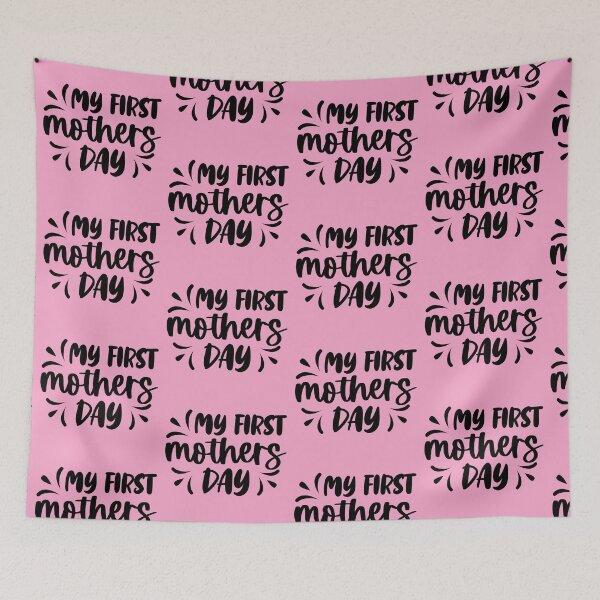 MY FIRST
mothers
DAY
MY FIRST
mothers
DAY
MY FIRST
mothers
DAY
MY FIRST
mothers
mothers
DAY
MY FIRST
mothers
DAY
MY FIRST
mothers
DAY
MY FIRST
mothers
DAY
MY FIRST
mothers
DAY
MY FIRST
mothers
DAY
MY FIRST
mothers
DAY
MY FIRST
mothers
mothers
DAY
MY FIRST
mothers
DAY
MY FIRST
mothers
DAY
MY FIRST
mothers
DAY